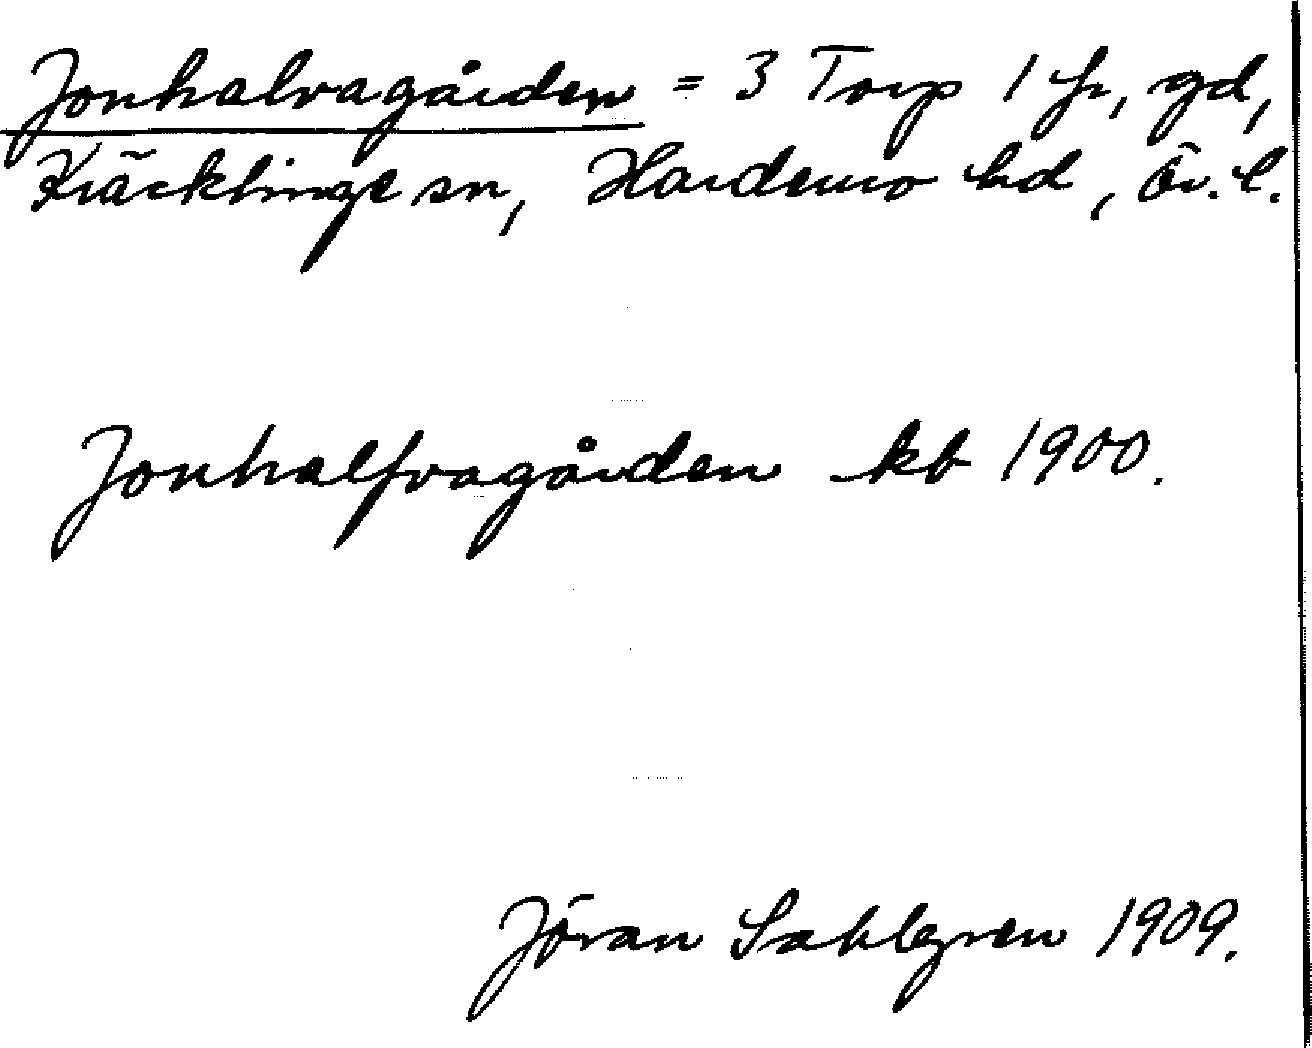 Jonhalvagården = 3 Torp 1 fr, gd,
Kräcklinge sn, Hardemo hd, Ör. l.
Jonhalfvagården kb 1900.
Jöran Sahlgren 1909.